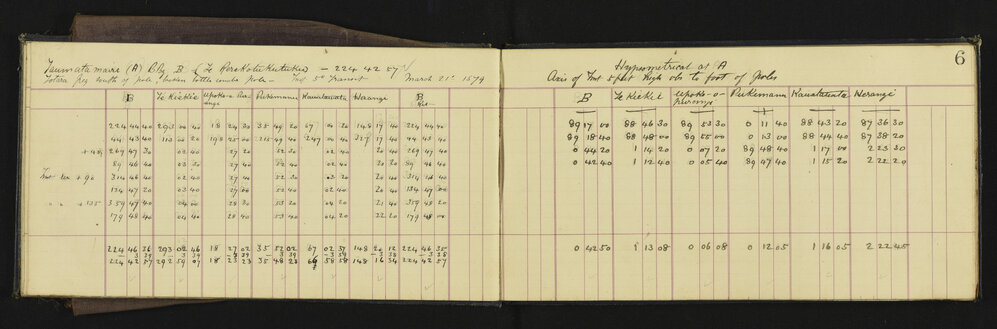 Taumatamaire (A) Bty B (Te Korokotukutuku) - 224 42 57
Totara peg south of pole, broken bottle under pole - Inst 5" Transit March 21st 1879
B Te Kiekie Upoko-o- Pukemanu Kauatatuata Herangi B
224 44 40 293 00 40 18 24 30 35 49 20 67 00 40 148 17 40 224 44 40
44 43 40 113 00 20 198 25 00 215 49 40 247 00 40 327 17 40 44 43 40
+45 269 47 30 02 40 27 20 52 30 02 40 20 40 269 47 40
89 46 40 03 30 27 40 52 40 03 20 20 40 89 46 40
Inst +90 314 46 40 02 40 27 40 53 20 03 20 20 40 314 46 40
134 47 20 03 40 27 00 53 00 02 40 20 40 134 47 00
" " +135 359 47 40 04 00 28 30 53 20 04 20 21 40 359 48 20
179 48 40 04 40 28 40 53 40 04 20 22 20 179 48 00
224 46 36 293 02 46 18 27 02 35 52 02 67 02 37 148 20 12 224 46 35
- 3 39 - 3 39 - 3 39 - 3 39 - 3 39 - 3 38 - 3 38
224 42 57 292 59 07 18 23 23 35 48 23 66 58 58 148 16 34 224 42 57
6
Hypsometrical at A
Axis of Inst 5 feet high obs to foot of poles
B Te Kiekie Upoko-o- Pukemanu Kauatatuata Herangi
89 17 00 88 46 30 89 53 30 0 11 40 88 43 20 87 36 30
89 18 40 88 48 00 89 55 00 0 13 00 88 44 40 87 38 20
0 44 20 1 14 20 0 07 20 89 48 40 1 17 00 2 23 30
0 42 40 1 12 40 0 05 40 89 47 40 1 15 20 2 22 20
0 42 50 1 13 08 0 06 08 0 12 05 1 16 05 2 22 45